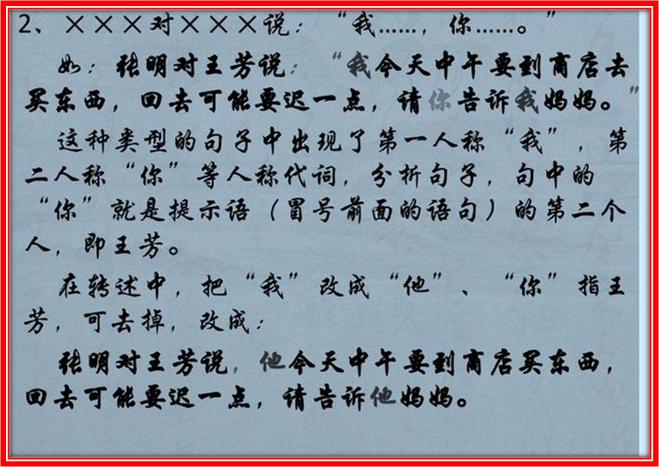 2、×××对×××说：“我……，你……。”
如：张明对王芳说：“我今天中午要到商店去
买东西，回去可能要迟一点，请你告诉我妈妈。”
这种类型的句子中出现了第一人称“我”，第
二人称“你”等人称代词，分析句子，句中的
“你”就是提示语（冒号前面的语句）的第二个
人，即王芳。
在转述中，把“我”改成“他”、“你”指王
芳，可去掉，改成：
张明对王芳说，他今天中午要到商店买东西，
回去可能要迟一点，请告诉他妈妈。